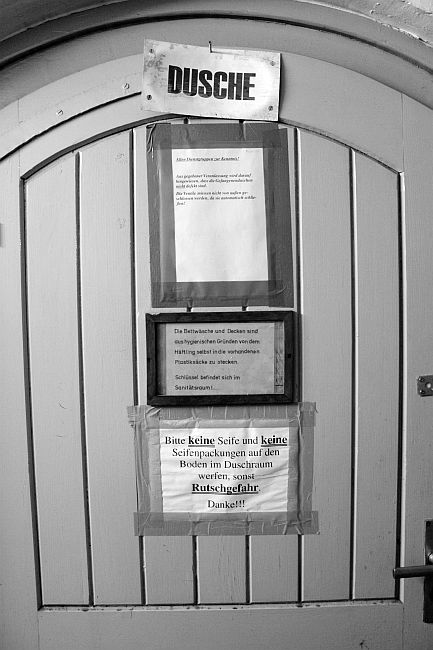 DUSCHE
Allen Dienstgruppen zur Kenntnis!
Aus gegebener Veranlassung wird darauf
hingewiesen, dass die Gefangenenduschen
nicht defekt sind.
Die Ventile müssen nicht von außen ge-
schlossen werden, da sie automatisch schlie-
ßen!
Die Bettwäsche und Decken sind
aus hygienischen Gründen von dem
Häftling selbst in die vorhandenen
Plastiksäcke zu stecken.
Schlüssel befindet sich im
Sanitätsraum!
Bitte keine Seife und keine
Seifenpackungen auf den
Boden im Duschraum
werfen, sonst
Rutschgefahr.
Danke!!!